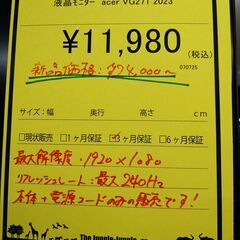 液晶モニター acer VG271 2023
¥11,980(税込)
新品価格:¥24,000〜
070725
サイズ:幅 奥行 高さ cm
□現状販売 □1ヶ月保証 ☑3ヶ月保証 □6ヶ月保証
最大解像度・1920×1080
リフレッシュレート:最大240Hz
本体+電源コードのみの販売です!
The Jungle Jungle